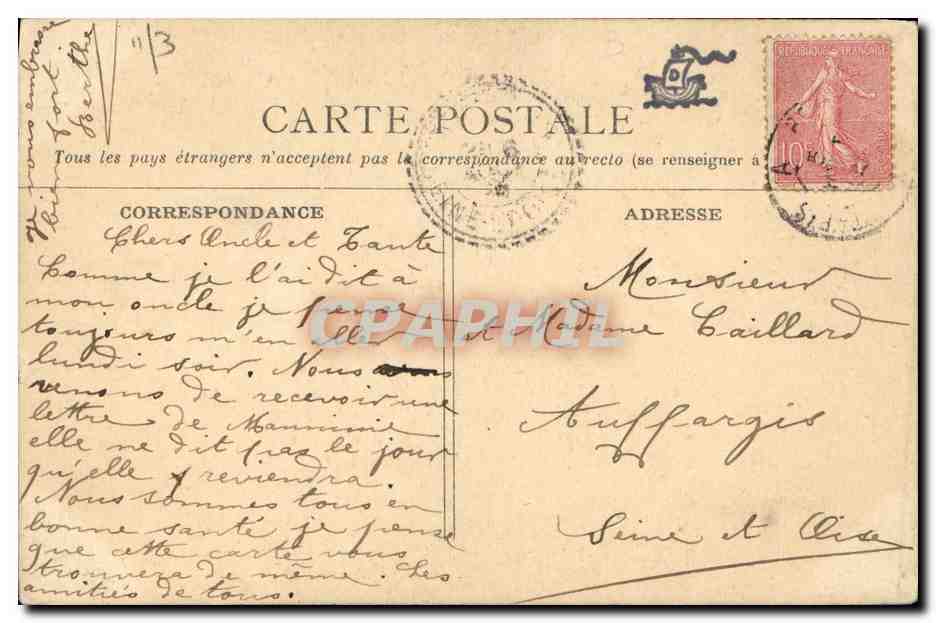 Je vous embrasse
bien fort
Berthe
11/3
CARTE POSTALE
Tous les pays étrangers n'acceptent pas la correspondance au recto (se renseigner à
RÉPUBLIQUE FRANÇAISE
10
D
PARIS
SEINE-ET-OISE
CORRESPONDANCE
Chers Oncle et Tante
Comme je l'ai dit à
mon oncle je pense
toujours m'en aller
lundi soir. Nous
venons de recevoir une
lettre de Maninie
elle ne dit pas le jour
qu'elle reviendra.
Nous sommes tous en
bonne santé je pense
que cette carte vous
trouvera de même. Ches
amitiés de tous.
ADRESSE
Monsieur
et Madame Caillard
Auffargis
Seine et Oise
CPAPHIL